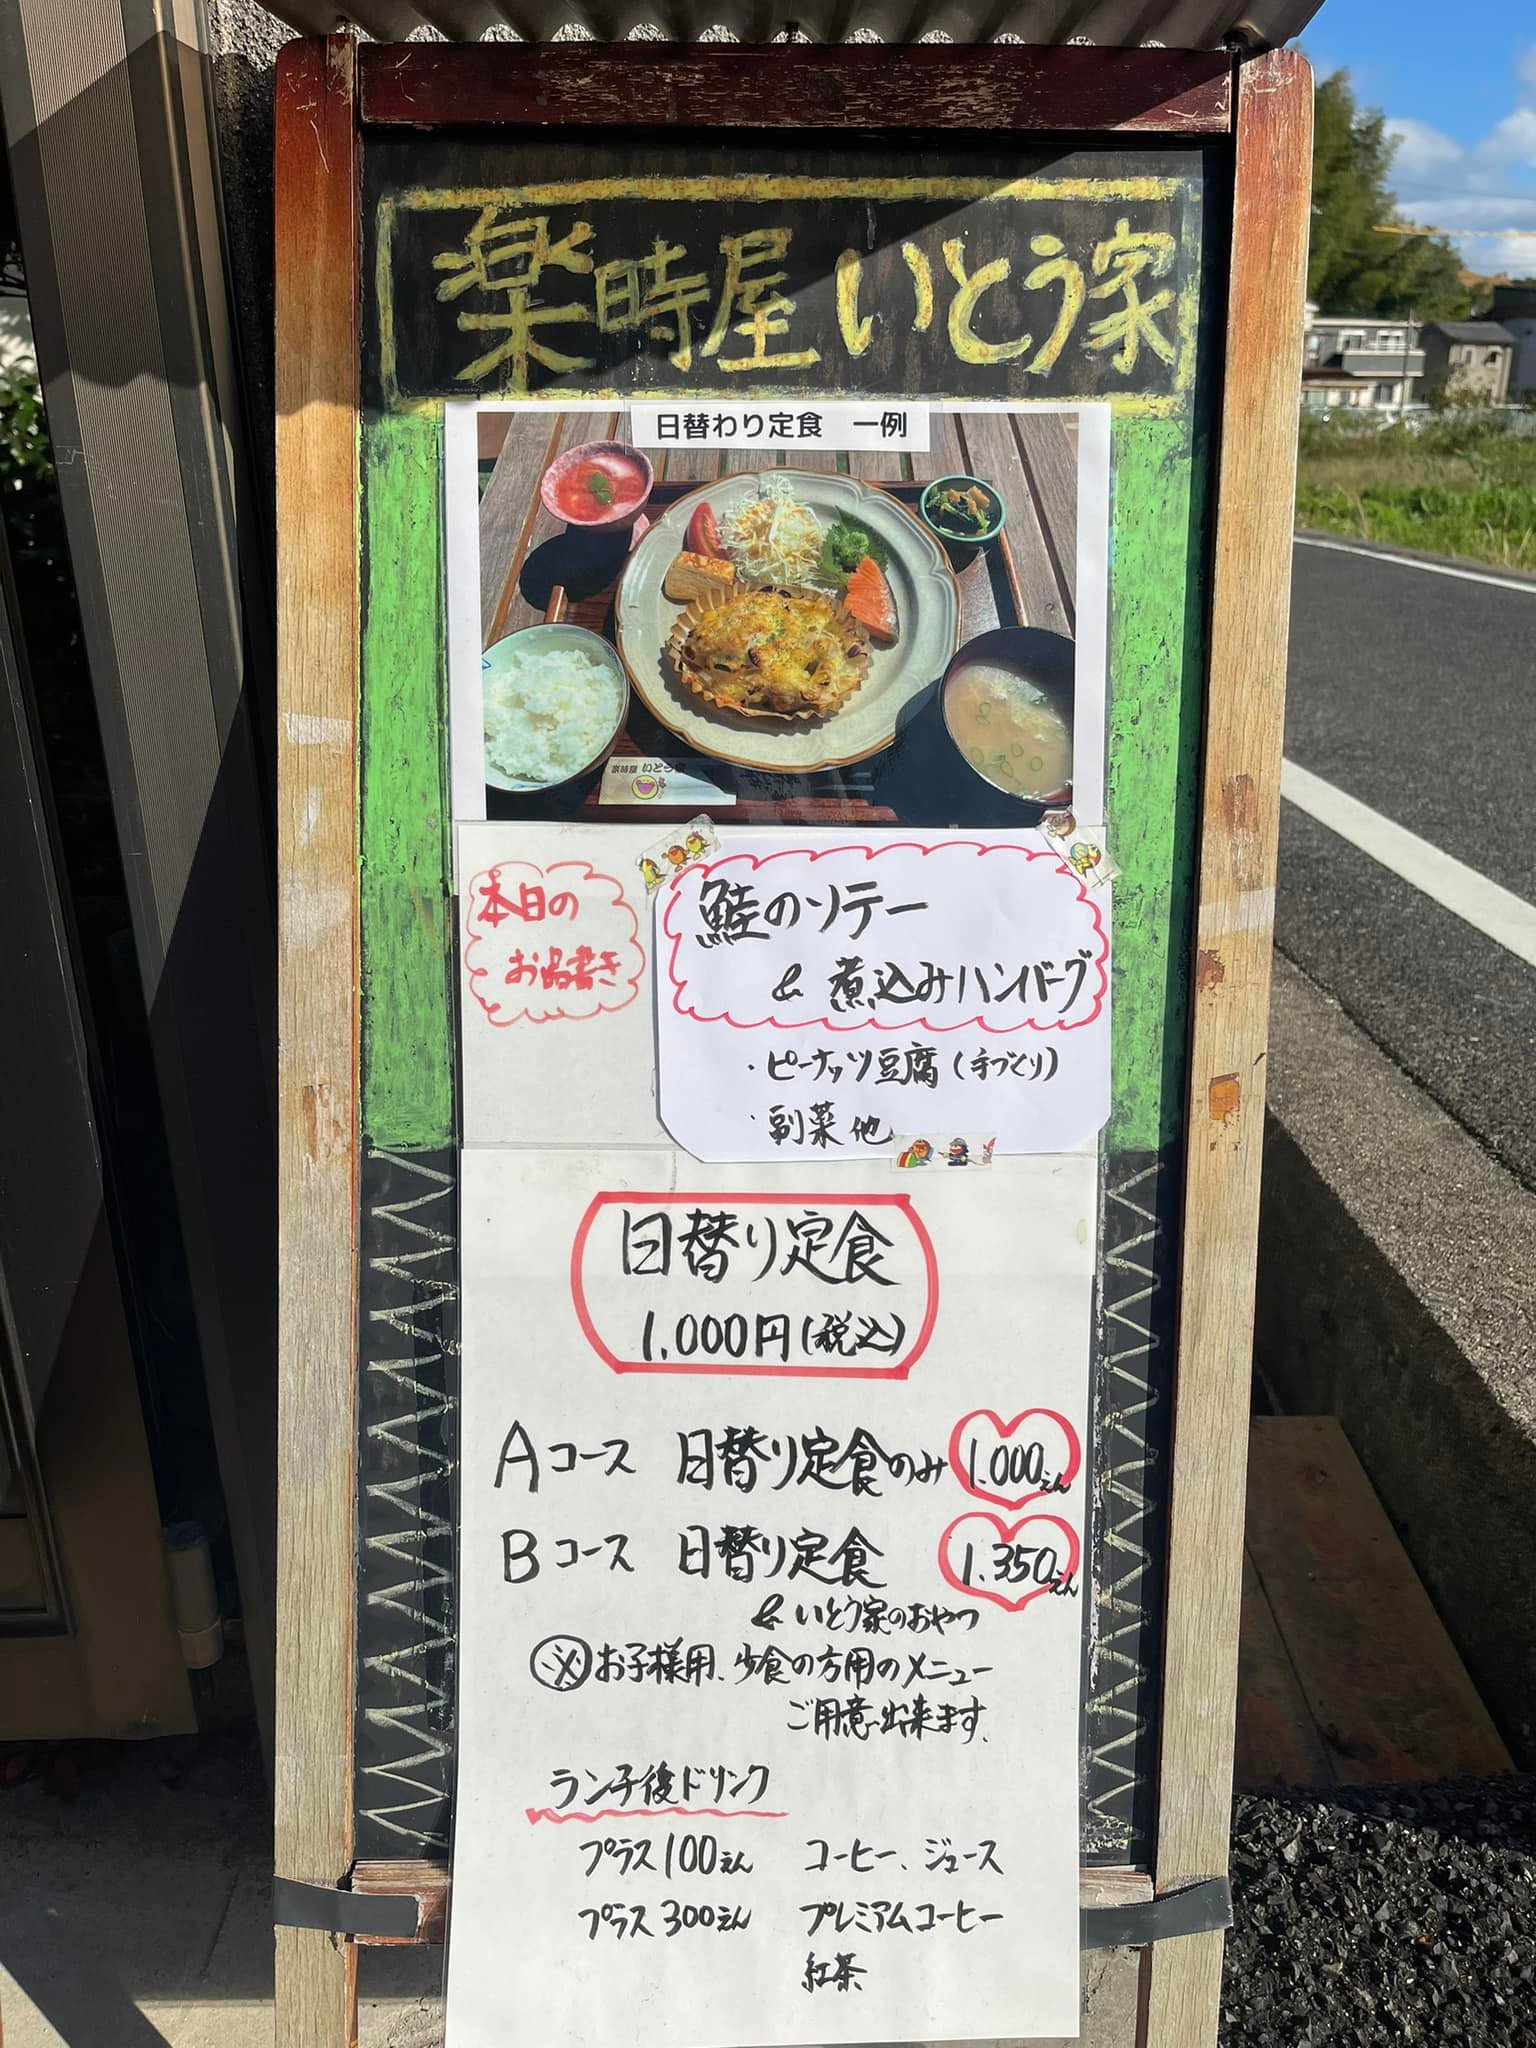 楽時屋 いとう家
日替わり定食 一例
楽時屋 いとう家
本日の
お品書き
鮭のソテー
& 煮込みハンバーグ
・ピーナッツ豆腐(手づくり)
・副菜 他
日替り定食
1.000円(税込)
Aコース 日替り定食のみ 1.000えん
Bコース 日替り定食 1.350えん
& いとう家のおやつ
※お子様用、少食の方用のメニュー
ご用意出来ます。
ランチ後ドリンク
プラス100えん コーヒー、ジュース
プラス300えん プレミアムコーヒー
紅茶